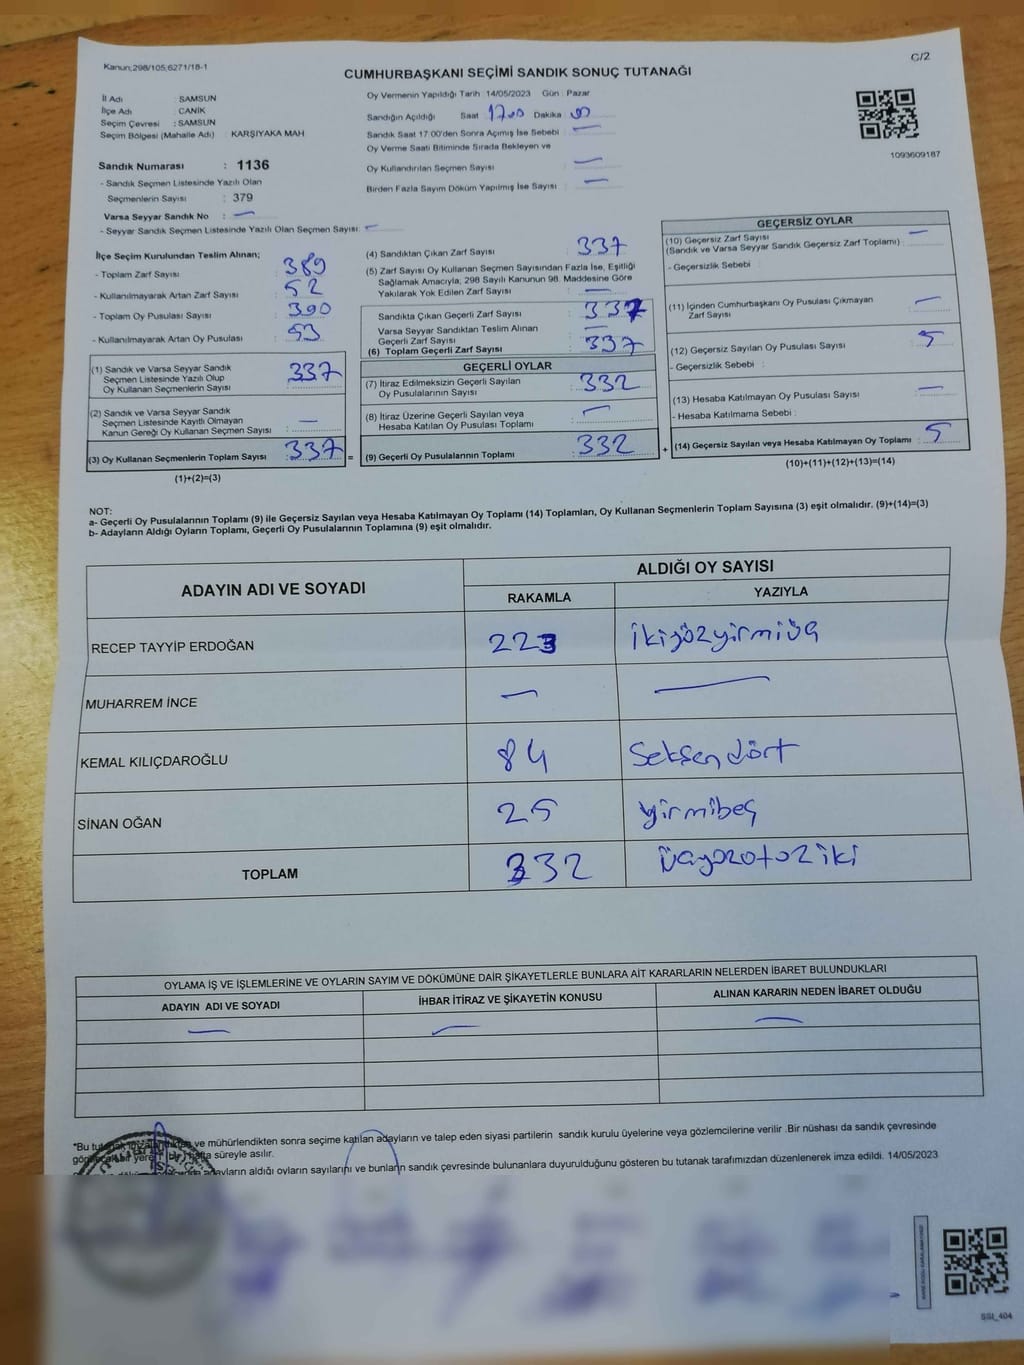 Kanun;298/105;6271/18-1
C/2
CUMHURBAŞKANI SEÇİMİ SANDIK SONUÇ TUTANAĞI
İl Adı : SAMSUN
İlçe Adı : CANİK
Seçim Çevresi : SAMSUN
Seçim Bölgesi (Mahalle Adı) : KARŞIYAKA MAH
Sandık Numarası : 1136
- Sandık Seçmen Listesinde Yazılı Olan
Seçmenlerin Sayısı : 379
Varsa Seyyar Sandık No : —
- Seyyar Sandık Seçmen Listesinde Yazılı Olan Seçmen Sayısı: —
Oy Vermenin Yapıldığı Tarih 14/05/2023 Gün : Pazar
Sandığın Açıldığı Saat 17.00 Dakika
Sandık Saat 17:00'den Sonra Açımış İse Sebebi : —
Oy Verme Saati Bitiminde Sırada Bekleyen ve
Oy Kullandırılan Seçmen Sayısı : —
Birden Fazla Sayım Döküm Yapılmış İse Sayısı : —
1093609187
İlçe Seçim Kurulundan Teslim Alınan;
- Toplam Zarf Sayısı : 389
- Kullanılmayarak Artan Zarf Sayısı : 52
- Toplam Oy Pusulası Sayısı : 390
- Kullanılmayarak Artan Oy Pusulası : 53
(1) Sandık ve Varsa Seyyar Sandık
Seçmen Listesinde Yazılı Olup
Oy Kullanan Seçmenlerin Sayısı : 337
(2) Sandık ve Varsa Seyyar Sandık
Seçmen Listesinde Kayıtlı Olmayan
Kanun Gereği Oy Kullanan Seçmen Sayısı : —
(3) Oy Kullanan Seçmenlerin Toplam Sayısı : 337 =
(1)+(2)=(3)
(4) Sandıktan Çıkan Zarf Sayısı : 337
(5) Zarf Sayısı Oy Kullanan Seçmen Sayısından Fazla İse, Eşitliği
Sağlamak Amacıyla; 298 Sayılı Kanunun 98. Maddesine Göre
Yakılarak Yok Edilen Zarf Sayısı : —
Sandıkta Çıkan Geçerli Zarf Sayısı : 337
Varsa Seyyar Sandıktan Teslim Alınan
Geçerli Zarf Sayısı : —
(6) Toplam Geçerli Zarf Sayısı : 337
GEÇERLİ OYLAR
(7) İtiraz Edilmeksizin Geçerli Sayılan
Oy Pusulalarının Sayısı : 332
(8) İtiraz Üzerine Geçerli Sayılan veya
Hesaba Katılan Oy Pusulası Toplamı : —
(9) Geçerli Oy Pusulalarının Toplamı : 332 +
GEÇERSİZ OYLAR
(10) Geçersiz Zarf Sayısı : —
(Sandık ve Varsa Seyyar Sandık Geçersiz Zarf Toplamı)
- Geçersizlik Sebebi :
(11) İçinden Cumhurbaşkanı Oy Pusulası Çıkmayan
Zarf Sayısı : —
(12) Geçersiz Sayılan Oy Pusulası Sayısı : 5
- Geçersizlik Sebebi :
(13) Hesaba Katılmayan Oy Pusulası Sayısı : —
- Hesaba Katılmama Sebebi :
(14) Geçersiz Sayılan veya Hesaba Katılmayan Oy Toplamı : 5
(10)+(11)+(12)+(13)=(14)
NOT:
a- Geçerli Oy Pusulalarının Toplamı (9) ile Geçersiz Sayılan veya Hesaba Katılmayan Oy Toplamı (14) Toplamları, Oy Kullanan Seçmenlerin Toplam Sayısına (3) eşit olmalıdır. (9)+(14)=(3)
b- Adayların Aldığı Oyların Toplamı, Geçerli Oy Pusulalarının Toplamına (9) eşit olmalıdır.
ADAYIN ADI VE SOYADI
ALDIĞI OY SAYISI
RAKAMLA YAZIYLA
RECEP TAYYİP ERDOĞAN 223 ikiyüzyirmiüç
MUHARREM İNCE — —
KEMAL KILIÇDAROĞLU 84 Seksendört
SİNAN OĞAN 25 yirmibeş
TOPLAM 332 üçyüzotuziki
OYLAMA İŞ VE İŞLEMLERİNE VE OYLARIN SAYIM VE DÖKÜMÜNE DAİR ŞİKAYETLERLE BUNLARA AİT KARARLARIN NELERDEN İBARET BULUNDUKLARI
ADAYIN ADI VE SOYADI İHBAR İTİRAZ VE ŞİKAYETİN KONUSU ALINAN KARARIN NEDEN İBARET OLDUĞU
— — —
*Bu ve mühürlendikten sonra seçime katılan adayların ve talep eden siyasi partilerin sandık kurulu üyelerine veya gözlemcilerine verilir .Bir nüshası da sandık çevresinde
bir yere (bir) hafta süreyle asılır.
adayların aldığı oyların sayılarını ve bunların sandık çevresinde bulunanlara duyurulduğunu gösteren bu tutanak tarafımızdan düzenlenerek imza edildi. 14/05/2023
SSI_404